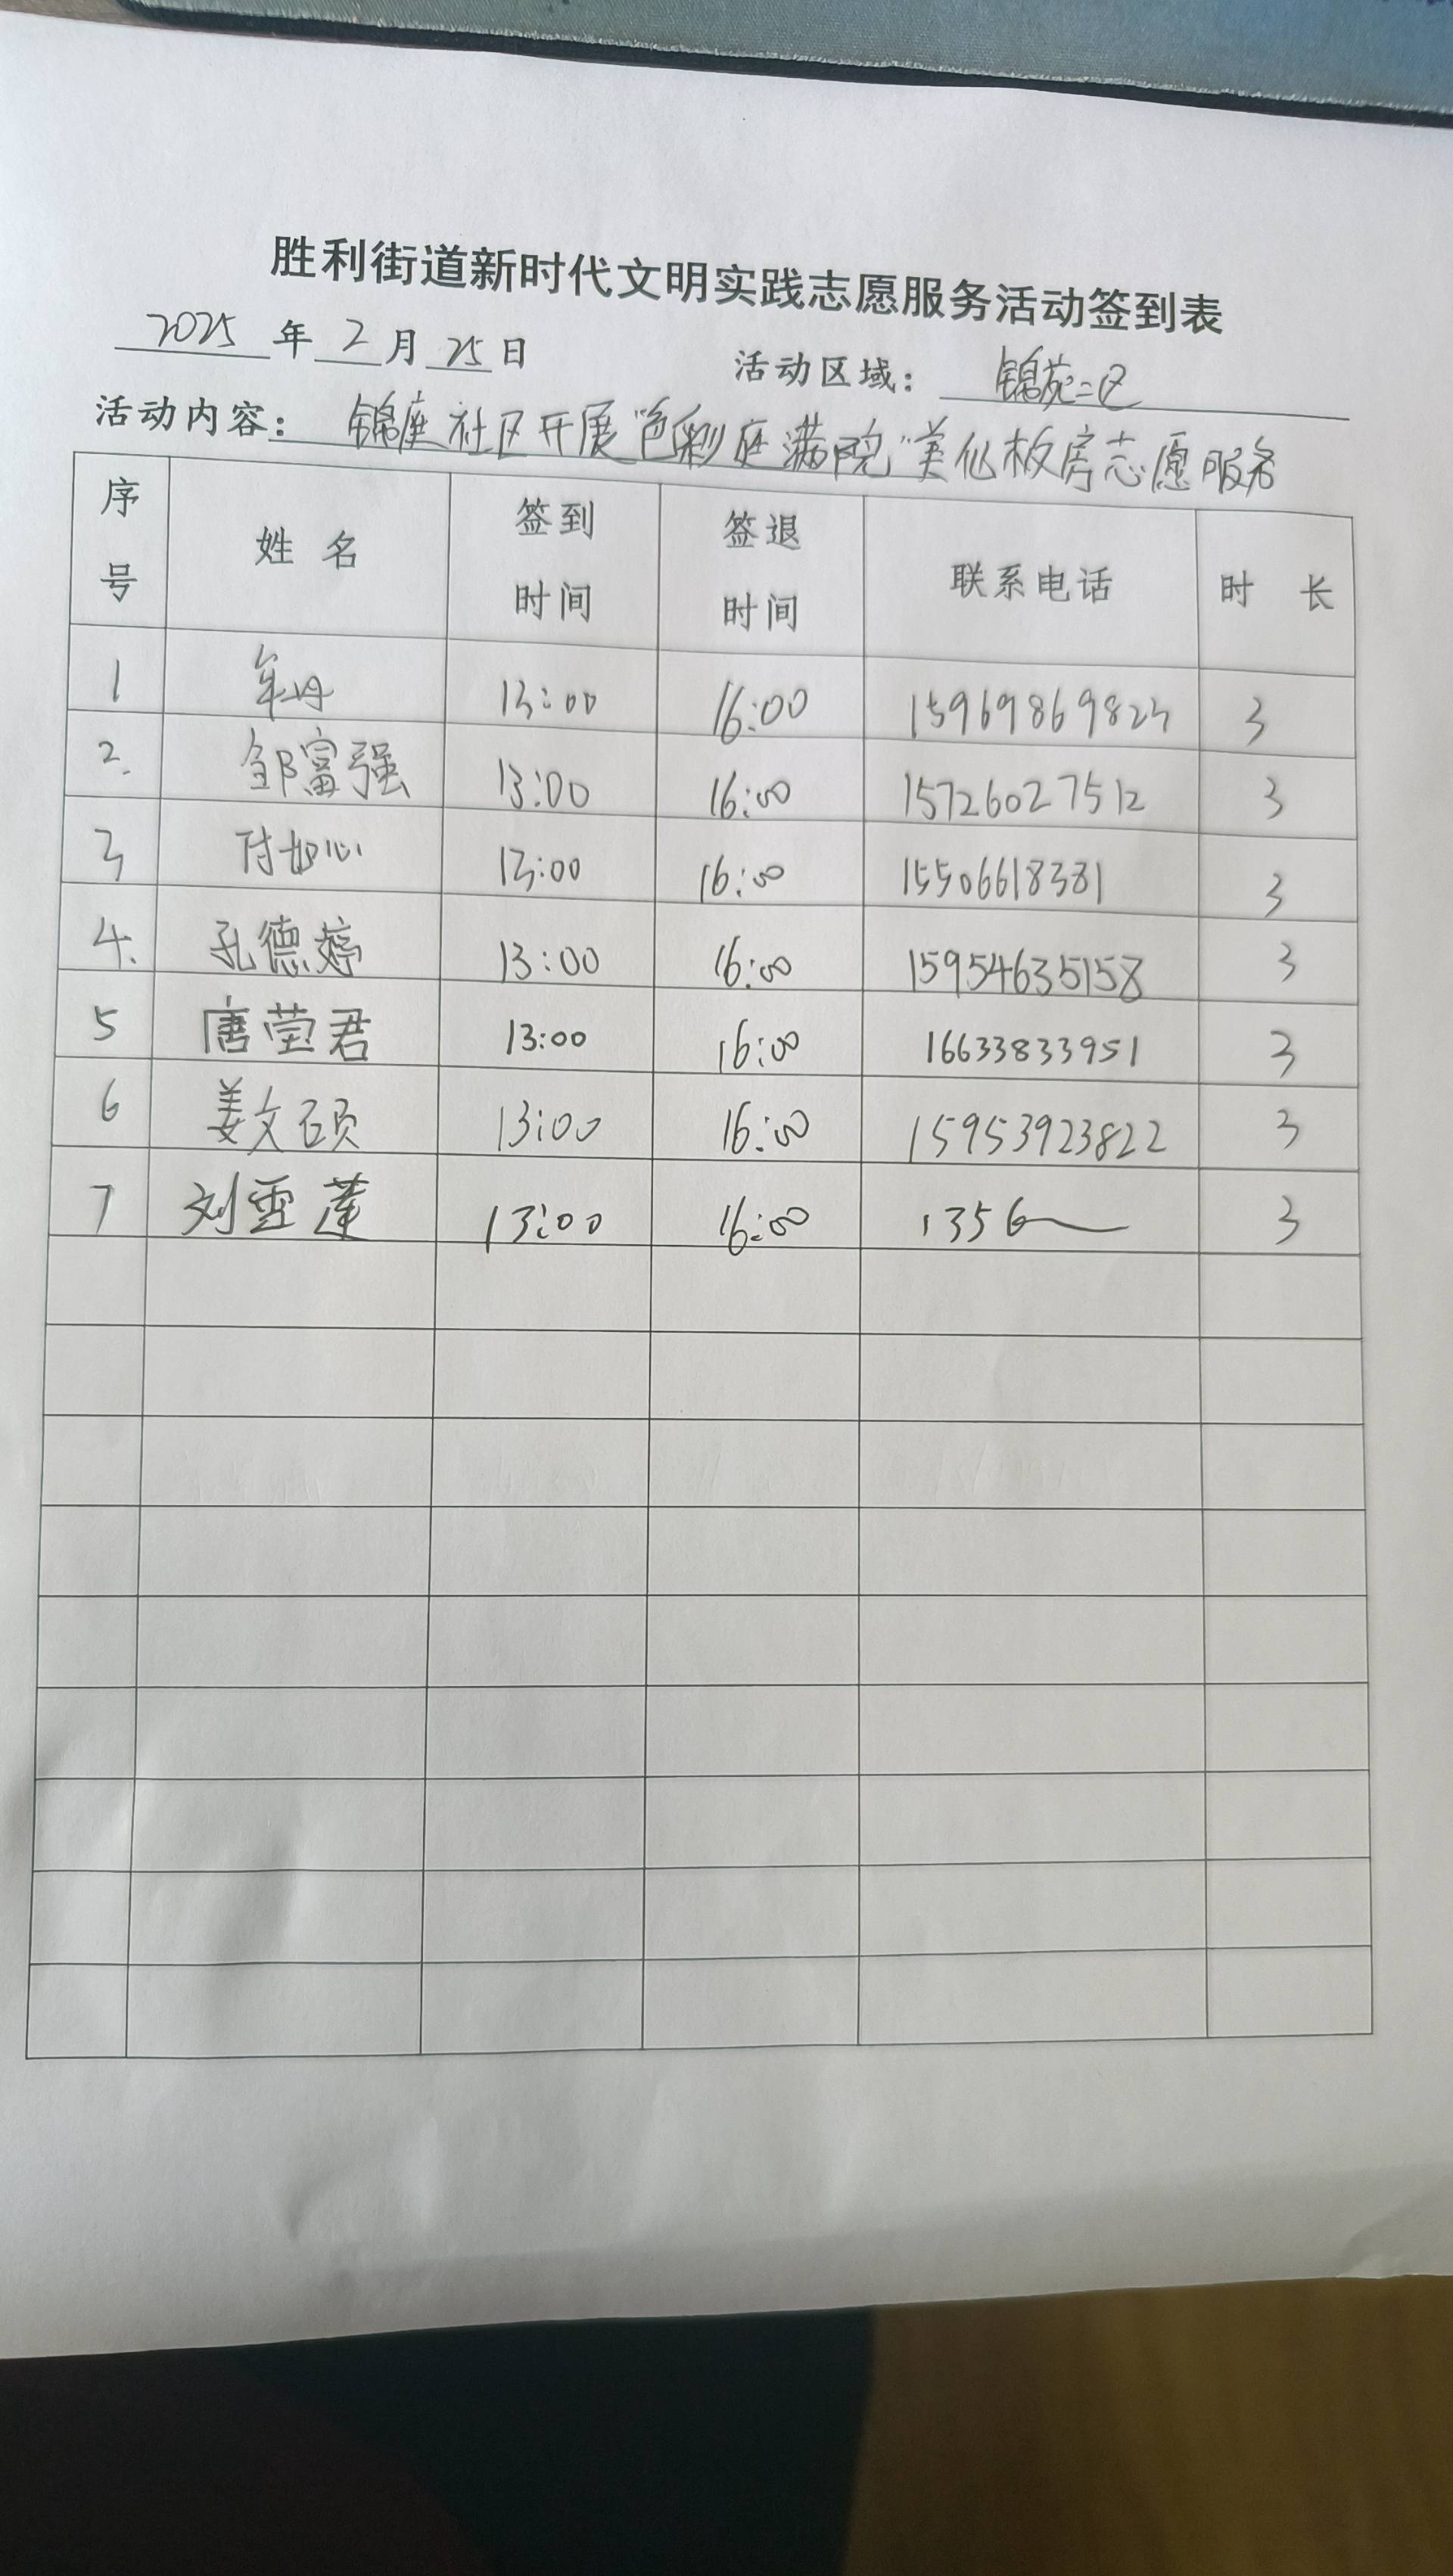 胜利街道新时代文明实践志愿服务活动签到表
2025年2月25日 活动区域：锦苑二区
活动内容：锦座社区开展"色彩庭满院"美化板房志愿服务
序号 姓名 签到时间 签退时间 联系电话 时长
1 牟丹 13:00 16:00 15969869823 3
2. 邹富强 13:00 16:00 15726027512 3
3 付如心 13:00 16:00 15506618381 3
4. 孔德婷 13:00 16:00 15954635158 3
5 唐莹君 13:00 16:00 16633833951 3
6 姜文硕 13:00 16:00 15953923822 3
7 刘雪莲 13:00 16:00 1356 3